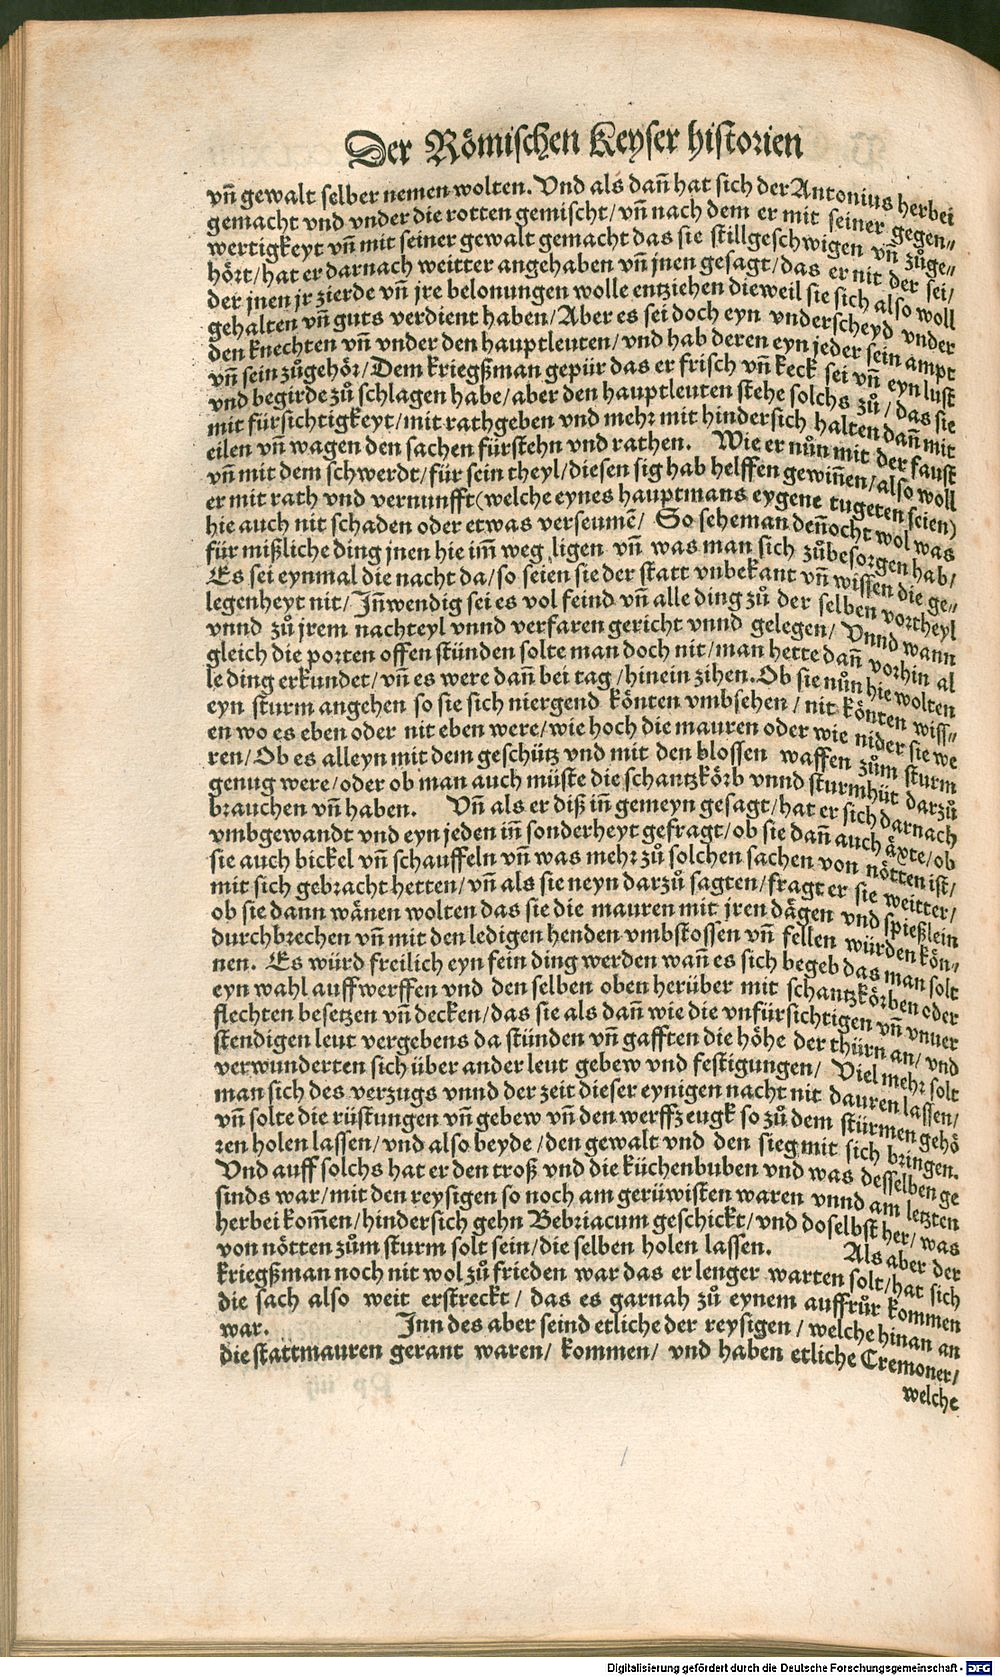 Der Römischen Keyser historien
vñ gewalt selber nemen wolten. Vnd als dañ hat sich der Antonius herbei
gemacht vnd vnder die rotten gemischt/ vñ nach dem er mit seiner gegen⸗
wertigkeyt vñ mit seiner gewalt gemacht das sie stillgeschwigen vñ zůge⸗
hört/ hat er darnach weitter angehaben vñ jnen gesagt/ das er nit der sei/
der jnen jr zierde vñ jre belonungen wolle entziehen dieweil sie sich also woll
gehalten vñ guts verdient haben/ Aber es sei doch eyn vnderscheyd vnder
den knechten vñ vnder den hauptleuten/ vnd hab deren eyn jeder sein ampt
vñ sein zůgehör/ Dem kriegßman gepür das er frisch vñ keck sei vñ eyn lust
vnd begirde zů schlagen habe/ aber den hauptleuten stehe solchs zů/ das sie
mit fürsichtigkeyt/ mit rathgeben vnd mehr mit hindersich halten dañ mit
eilen vñ wagen den sachen fürstehn vnd rathen. Wie er nůn mit der faust
vñ mit dem schwerdt/ für sein theyl/ diesen sig hab helffen gewiñen/ also woll
er mit rath vnd vernunfft (welche eynes hauptmans eygene tugeten seien)
hie auch nit schaden oder etwas verseumē/ So seheman deñocht wol was
für mißliche ding jnen hie im̃ weg ligen vñ was man sich zůbesorgen hab/
Es sei eynmal die nacht da/ so seien sie der statt vnbekant vñ wissen die ge⸗
legenheyt nit/ Jñwendig sei es vol feind vñ alle ding zů der selben vortheyl
vnnd zů jrem nachteyl vnnd verfaren gericht vnnd gelegen/ Vnnd wann
gleich die porten offen stünden solte man doch nit/ man hette dañ vorhin al
le ding erkundet/ vñ es were dañ bei tag/ hinein zihen. Ob sie nůn hie wolten
eyn sturm angehen so sie sich niergend könten vmbsehen/ nit könten wiss⸗
en wo es eben oder nit eben were/ wie hoch die mauren oder wie nider sie we
ren/ Ob es alleyn mit dem geschütz vnd mit den blossen waffen zům sturm
genug were/ oder ob man auch müste die schantzkörb vnnd sturmhüt darzů
brauchen vñ haben. Vñ als er diß iñ gemeyn gesagt/ hat er sich darnach
vmbgewandt vnd eyn jeden iñ sonderheyt gefragt/ ob sie dañ auch äxte/ ob
sie auch bickel vñ schauffeln vñ was mehr zů solchen sachen von nötten ist/
mit sich gebracht hetten/ vñ als sie neyn darzů sagten/ fragt er sie weitter/
ob sie dann wänen wolten das sie die mauren mit jren dägen vnd spießlein
durchbrechen vñ mit den ledigen henden vmbstossen vñ fellen würden kön⸗
nen. Es würd freilich eyn fein ding werden wañ es sich begeb das man solt
eyn wahl auffwerffen vnd den selben oben herüber mit schantzkörben oder
flechten besetzen vñ decken/ das sie als dañ wie die vnfürsichtigen vñ vnuer
stendigen leut vergebens da stünden vñ gafften die höhe der thürn an/ vnd
verwunderten sich über ander leut gebew vnd festigungen/ Viel mehr solt
man sich des verzugs vnnd der zeit dieser eynigen nacht nit dauren lassen/
vñ solte die rüstungen vñ gebew vñ den werffzeugk so zů dem stürmen gehö
ren holen lassen/ vnd also beyde/ den gewalt vnd den sieg mit sich bringen.
Vnd auff solchs hat er den troß vnd die küchenbuben vnd was desselben ge
sinds war/ mit den reysigen so noch am gerüwisten waren vnnd am letzten
herbei kom̃en/ hindersich gehn Bebriacum geschickt/ vnd doselbst her/ was
von nötten zům sturm solt sein/ die selben holen lassen. Als aber der
kriegßman noch nit wol zů frieden war das er lenger warten solt/ hat sich
die sach also weit erstreckt/ das es garnah zů eynem auffrůr kommen
war. Jnn des aber seind etliche der reysigen/ welche hinan an
die stattmauren gerant waren/ kommen/ vnd haben etliche Cremoner/
welche
Digitalisierung gefördert durch die Deutsche Forschungsgemeinschaft - DFG